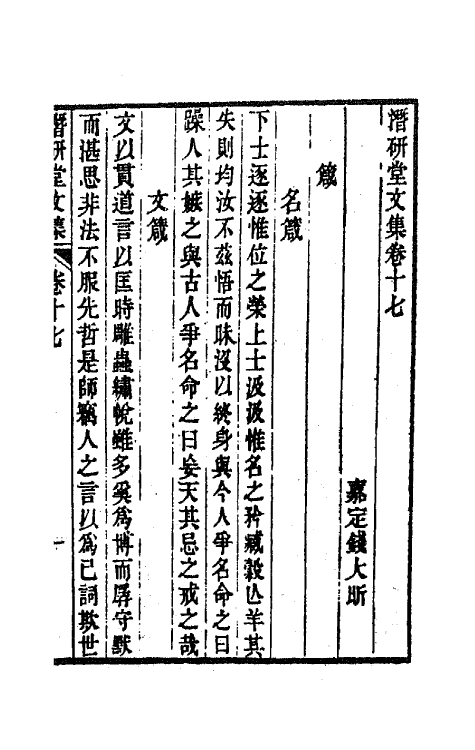 潛研堂文集卷十七
嘉定錢大昕
箴
名箴
下士逐逐惟位之榮上士汲汲惟名之矜臧穀亾羊其
失則均汝不茲悟而昧沒以終身與今人爭名命之曰
躁人其嫉之與古人爭名命之曰妄天其忌之戒之哉
文箴
文以貫道言以匡時雕蟲繡帨雖多奚爲博而孱守默
而湛思非法不服先哲是師竊人之言以爲己詞欺世
潛研堂文集 卷十七 一